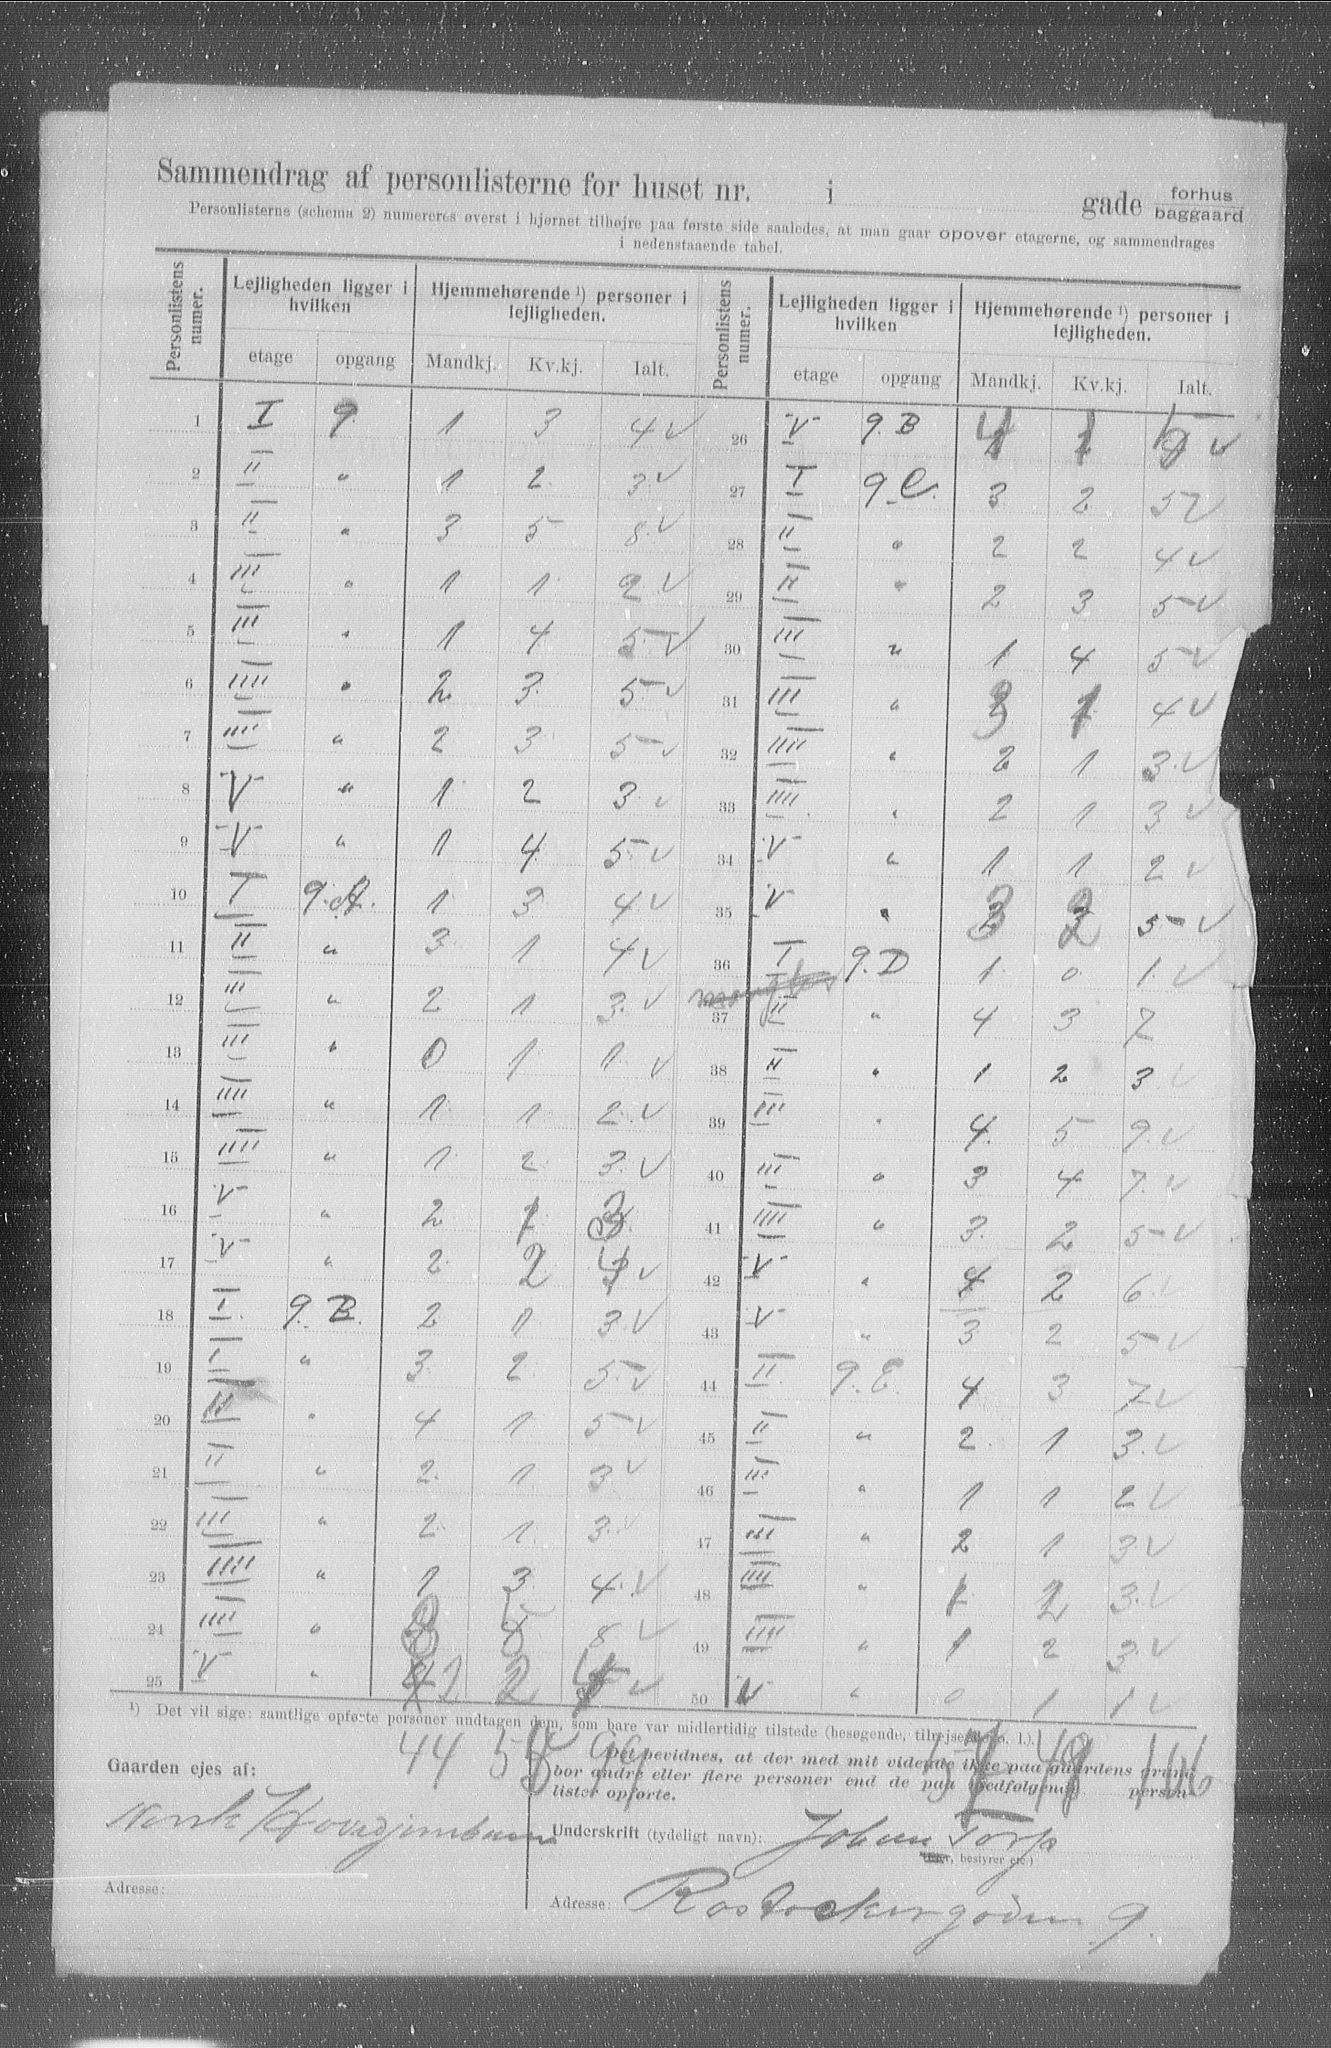 Sammendrag af personlisterne for huset nr. i gade forhus baggaard
Personlisterne (schema 2) numereres øverst i hjørnet tilhøjre paa første side saaledes, at man gaar opover etagerne, og sammendrages
i nedenstaaende tabel.
Personlistens numer. Lejligheden ligger i hvilken Hjemmehørende 1) personer i lejligheden. Personlistens numer. Lejligheden ligger i hvilken Hjemmehørende 1) personer i lejligheden.
etage opgang Mandkj. Kv.kj. Ialt. etage opgang Mandkj. Kv.kj. Ialt.
1 I 9. 1 3 4 v
2 II " 1 2 3 v
3 II " 3 5 8 v
4 III " 1 1 2 v
5 III " 1 4 5 v
6 IIII " 2 3 5 v
7 IIII " 2 3 5 v
8 V " 1 2 3 v
9 V " 1 4 5 v
10 I 9.A. 1 3 4 v
11 II " 3 1 4 v
12 III " 2 1 3 v
13 III " 0 1 1 v
14 IIII " 1 1 2 v
15 IIII " 1 2 3 v
16 V " 2 1 3
17 V " 2 2 4 v
18 I 9.B. 2 1 3 v
19 I " 3 2 5 v
20 II " 4 1 5 v
21 II " 2 1 3 v
22 III " 2 1 3 v
23 IIII " 1 3 4 v
24 IIII " 3 5 8 v
25 V " 2 2 4 v
26 V 9.B 4 1 5 v
27 I 9.C. 3 2 5 v
28 II " 2 2 4 v
29 II " 2 3 5 v
30 III " 1 4 5 v
31 III " 3 1 4 v
32 IIII " 2 1 3 v
33 IIII " 2 1 3 v
34 V " 1 1 2 v
35 V " 3 2 5 v
36 I 9.D 1 0 1 v
37 II " 4 3 7
38 II " 1 2 3 v
39 III " 4 5 9 v
40 III " 3 4 7 v
41 IIII " 3 2 5 v
42 V " 4 2 6 v
43 V " 3 2 5 v
44 II 9.E. 4 3 7 v
45 II " 2 1 3 v
46 III " 1 1 2 v
47 III " 2 1 3 v
48 IIII " 1 2 3 v
49 IIII " 1 2 3 v
50 V " 0 1 1 v
1) Det vil sige: samtlige opførte personer undtagen dem, som bare var midlertidig tilstede (besøgende, tilrejsende o. l.).
44
Gaarden ejes af:
Norsk Hovedjernbane
Adresse:
Det bevidnes, at der med mit vidende ikke paa gaardens grund
bor andre eller flere personer end de paa medfølgende person-
lister opførte.
Underskrift (tydeligt navn): Johan Torp
(Ejer, bestyrer etc.)
Adresse: Rostockergaden 9.